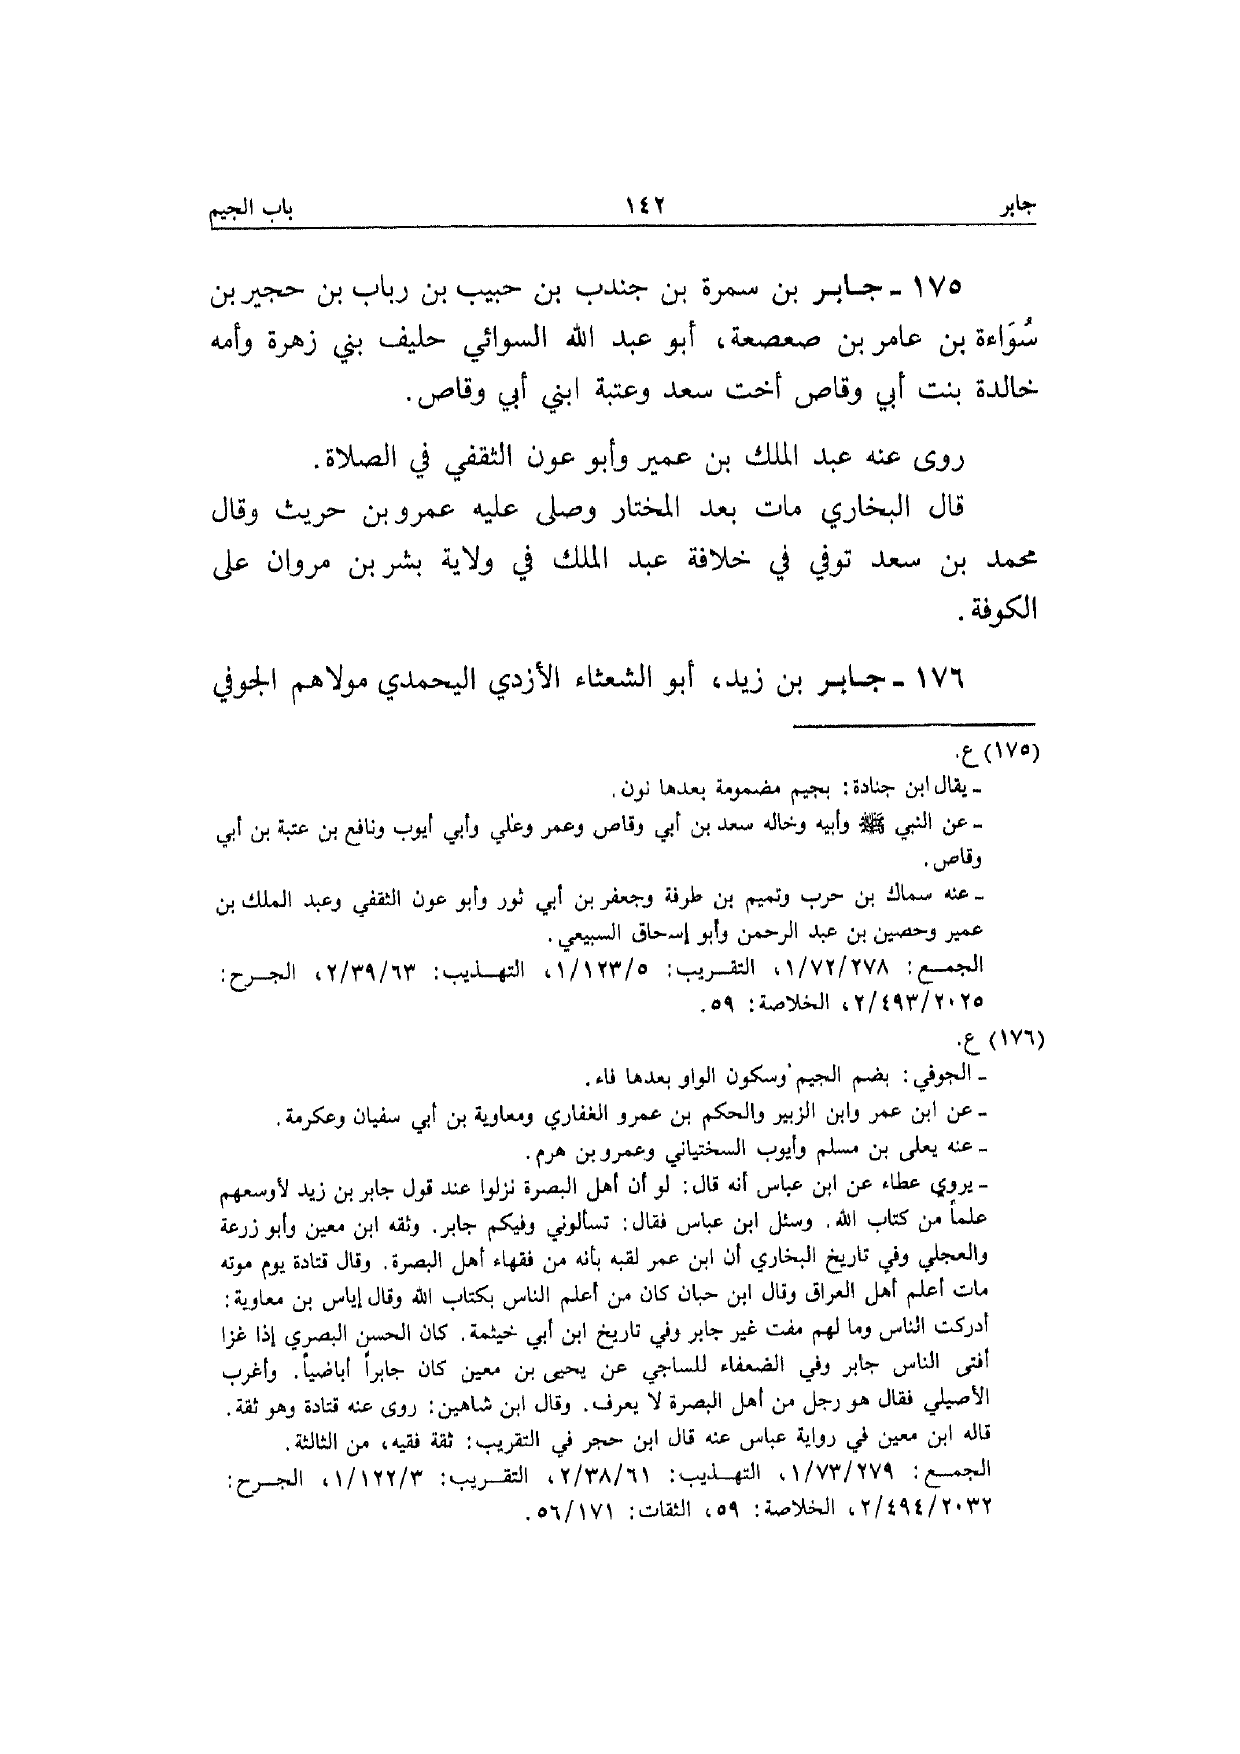 جابر ١٤٢ باب الجيم
١٧٥ ـ جـابـر بن سمرة بن جندب بن حبيب بن رباب بن حجير بن
سُوَاءة بن عامر بن صعصعة، أبو عبد الله السوائي حليف بني زهرة وأمه
خالدة بنت أبي وقاص أخت سعد وعتبة ابني أبي وقاص.
روى عنه عبد الملك بن عمير وأبو عون الثقفي في الصلاة.
قال البخاري مات بعد المختار وصلى عليه عمرو بن حريث وقال
محمد بن سعد توفي في خلافة عبد الملك في ولاية بشر بن مروان على
الكوفة.
١٧٦ ـ جـابـر بن زيد، أبو الشعثاء الأزدي اليحمدي مولاهم الجوفي
(١٧٥) ع.
ـ يقال ابن جنادة: بجيم مضمومة بعدها نون.
ـ عن النبي ﷺ وأبيه وخاله سعد بن أبي وقاص وعمر وعلي وأبي أيوب ونافع بن عتبة بن أبي
وقاص.
ـ عنه سماك بن حرب وتميم بن طرفة وجعفر بن أبي ثور وأبو عون الثقفي وعبد الملك بن
عمير وحصين بن عبد الرحمن وأبو إسحاق السبيعي.
الجمـع: ١/٧٢/٢٧٨، التقـريب: ١/١٢٣/٥، التهـذيب: ٢/٣٩/٦٣، الجـرح:
٢/٤٩٣/٢٠٢٥، الخلاصة: ٥٩.
(١٧٦) ع.
ـ الجوفي: بضم الجيم وسكون الواو بعدها فاء.
ـ عن ابن عمر وابن الزبير والحكم بن عمرو الغفاري ومعاوية بن أبي سفيان وعكرمة.
ـ عنه يعلى بن مسلم وأيوب السختياني وعمرو بن هرم.
ـ يروي عطاء عن ابن عباس أنه قال: لو أن أهل البصرة نزلوا عند قول جابر بن زيد لأوسعهم
علماً من كتاب الله. وسئل ابن عباس فقال: تسألوني وفيكم جابر. وثقه ابن معين وأبو زرعة
والعجلي وفي تاريخ البخاري أن ابن عمر لقبه بأنه من فقهاء أهل البصرة. وقال قتادة يوم موته
مات أعلم أهل العراق وقال ابن حبان كان من أعلم الناس بكتاب الله وقال إياس بن معاوية:
أدركت الناس وما لهم مفت غير جابر وفي تاريخ ابن أبي خيثمة. كان الحسن البصري إذا غزا
أفتى الناس جابر وفي الضعفاء للساجي عن يحيى بن معين كان جابراً أباضياً. وأغرب
الأصيلي فقال هو رجل من أهل البصرة لا يعرف. وقال ابن شاهين: روى عنه قتادة وهو ثقة.
قاله ابن معين في رواية عباس عنه قال ابن حجر في التقريب: ثقة فقيه، من الثالثة.
الجمـع: ١/٧٣/٢٧٩، التهـذيب: ٢/٣٨/٦١، التقـريب: ١/١٢٢/٣، الجـرح:
٢/٤٩٤/٢٠٣٢، الخلاصة: ٥٩، الثقات: ٥٦/١٧١.